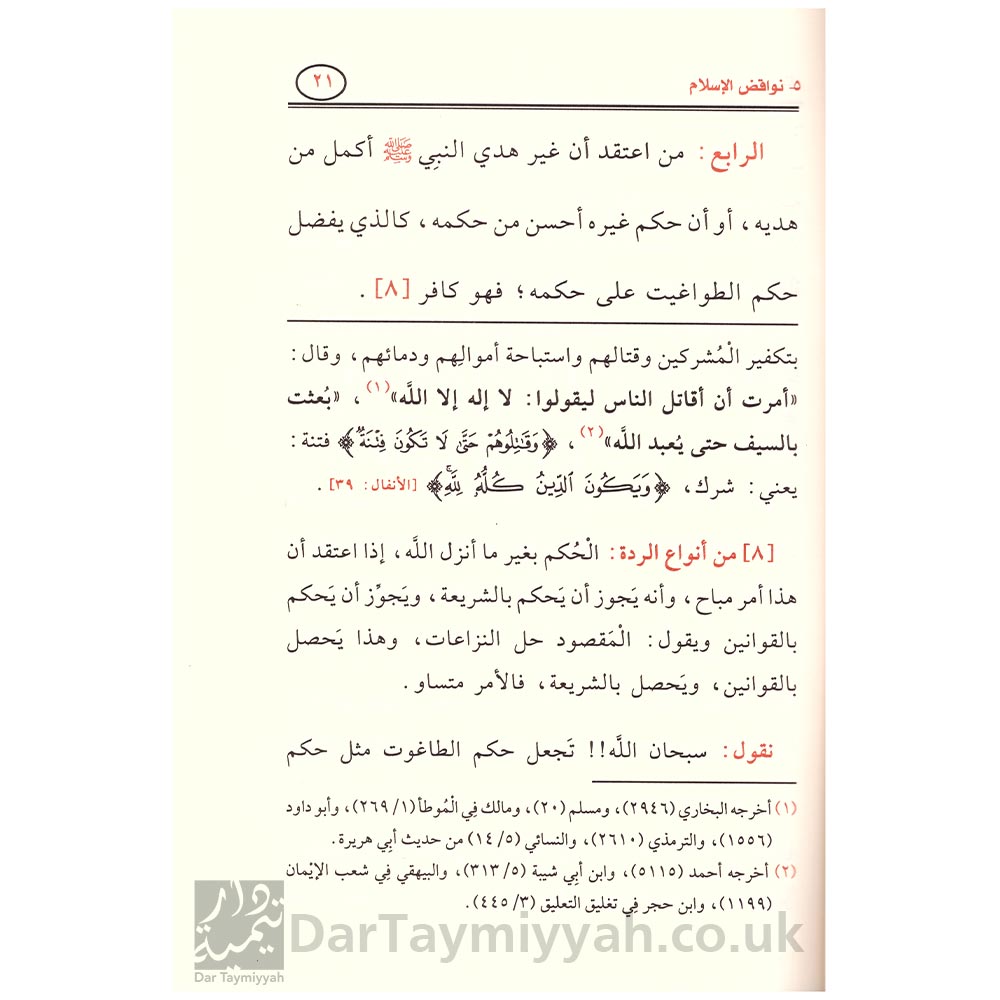 ٥- نواقض الإسلام
٢١
الرابع: من اعتقد أن غير هدي النبي ﷺ أكمل من
هديه، أو أن حكم غيره أحسن من حكمه، كالذي يفضل
حكم الطواغيت على حكمه؛ فهو كافر [٨].
بتكفير الْمُشركين وقتالهم واستباحة أموالِهم ودمائهم، وقال:
«أمرت أن أقاتل الناس ليقولوا: لا إله إلا اللَّه»(١)، «بُعثت
بالسيف حتى يُعبد اللَّه»(٢)، ﴿وَقَٰتِلُوهُمْ حَتَّىٰ لَا تَكُونَ فِتْنَةٌ﴾ فتنة:
يعني: شرك، ﴿وَيَكُونَ ٱلدِّينُ كُلُّهُۥ لِلَّهِۚ﴾ [الأنفال: ٣٩].
[٨] من أنواع الردة: الْحُكم بغير ما أنزل اللَّه، إذا اعتقد أن
هذا أمر مباح، وأنه يَجوز أن يَحكم بالشريعة، ويَجوِّز أن يَحكم
بالقوانين ويقول: الْمَقصود حل النزاعات، وهذا يَحصل
بالقوانين، ويَحصل بالشريعة، فالأمر متساو.
نقول: سبحان اللَّه!! تَجعل حكم الطاغوت مثل حكم
(١) أخرجه البخاري (٢٩٤٦)، ومسلم (٢٠)، ومالك فِي الْمُوطأ (١/ ٢٦٩)، وأبو داود
(١٥٥٦)، والترمذي (٢٦١٠)، والنسائي (٥/ ١٤) من حديث أبِي هريرة.
(٢) أخرجه أحمد (٥١١٥)، وابن أبِي شيبة (٥/ ٣١٣)، والبيهقي فِي شعب الإيْمان
(١١٩٩)، وابن حجر فِي تغليق التعليق (٣/ ٤٤٥).
دار تيمية
Dar Taymiyyah
DarTaymiyyah.co.uk